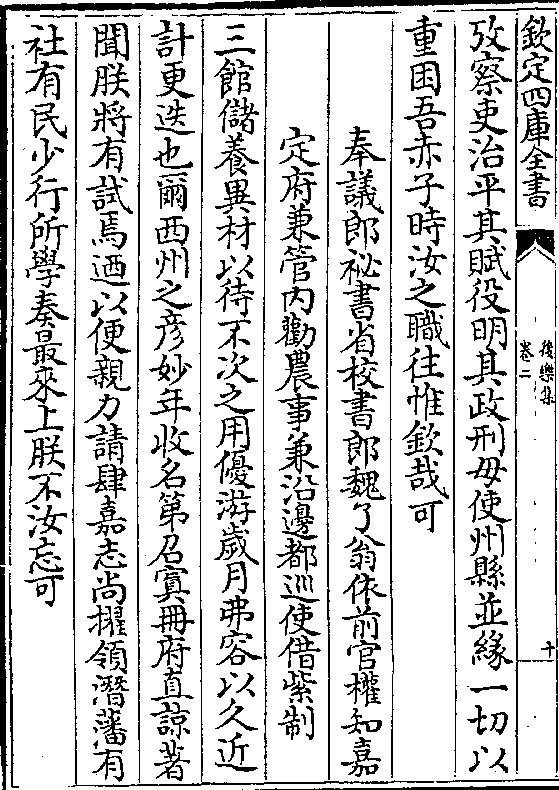 欽定四庫全書
後樂集
卷二
十
攷察吏治平其賦役明其政刑毋使州縣並緣一切以
重困吾赤子時汝之職往惟欽哉可
奉議郎祕書省校書郎魏了翁依前官權知嘉
定府兼管内勸農事兼沿邊都巡使借紫制
三館儲養異材以待不次之用優游歲月弗容以久近
計更迭也爾西州之彦妙年收名第召寘冊府直諒著
聞朕將有試焉廼以便親力請肆嘉志尚擢領潛藩有
社有民少行所學奏最來上朕不汝忘可